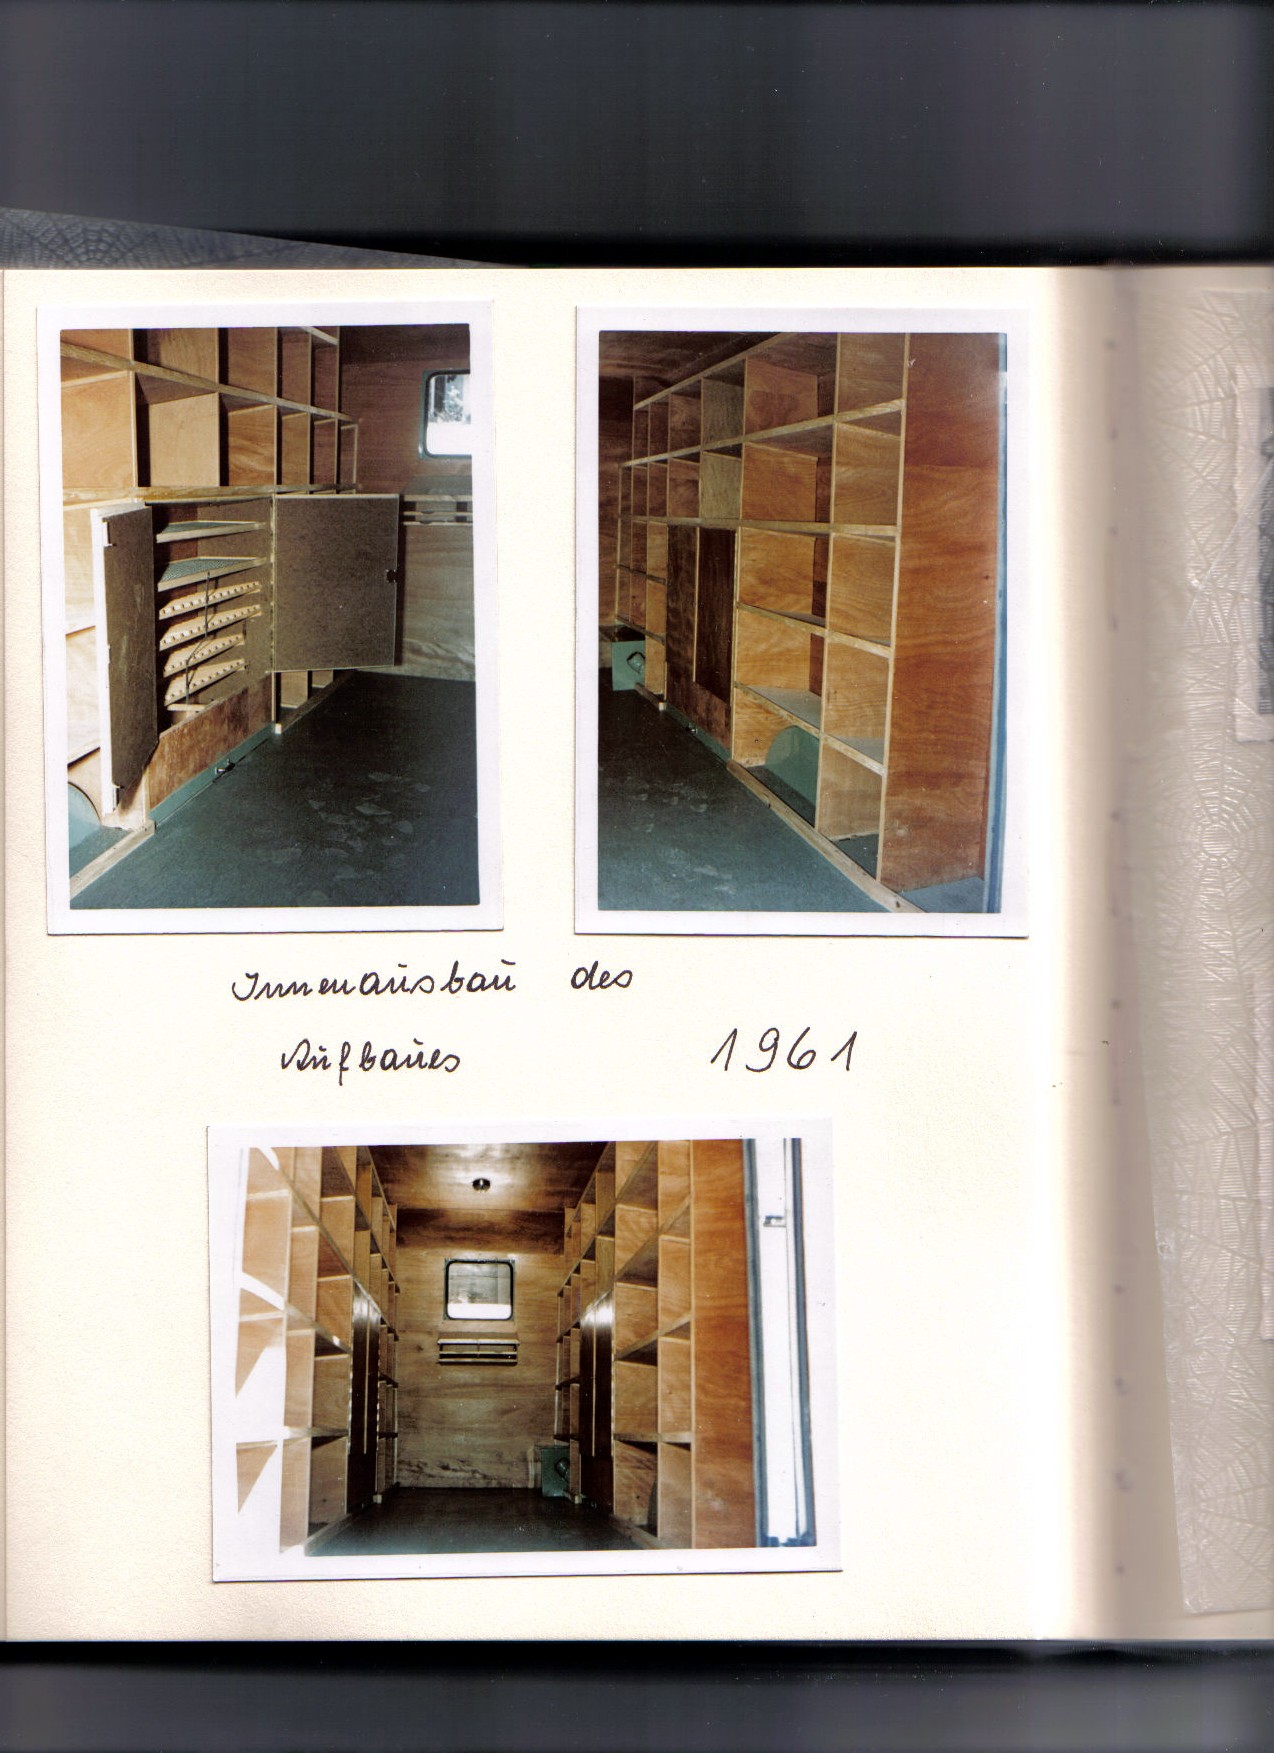 Innenausbau des
Aufbaues 1961